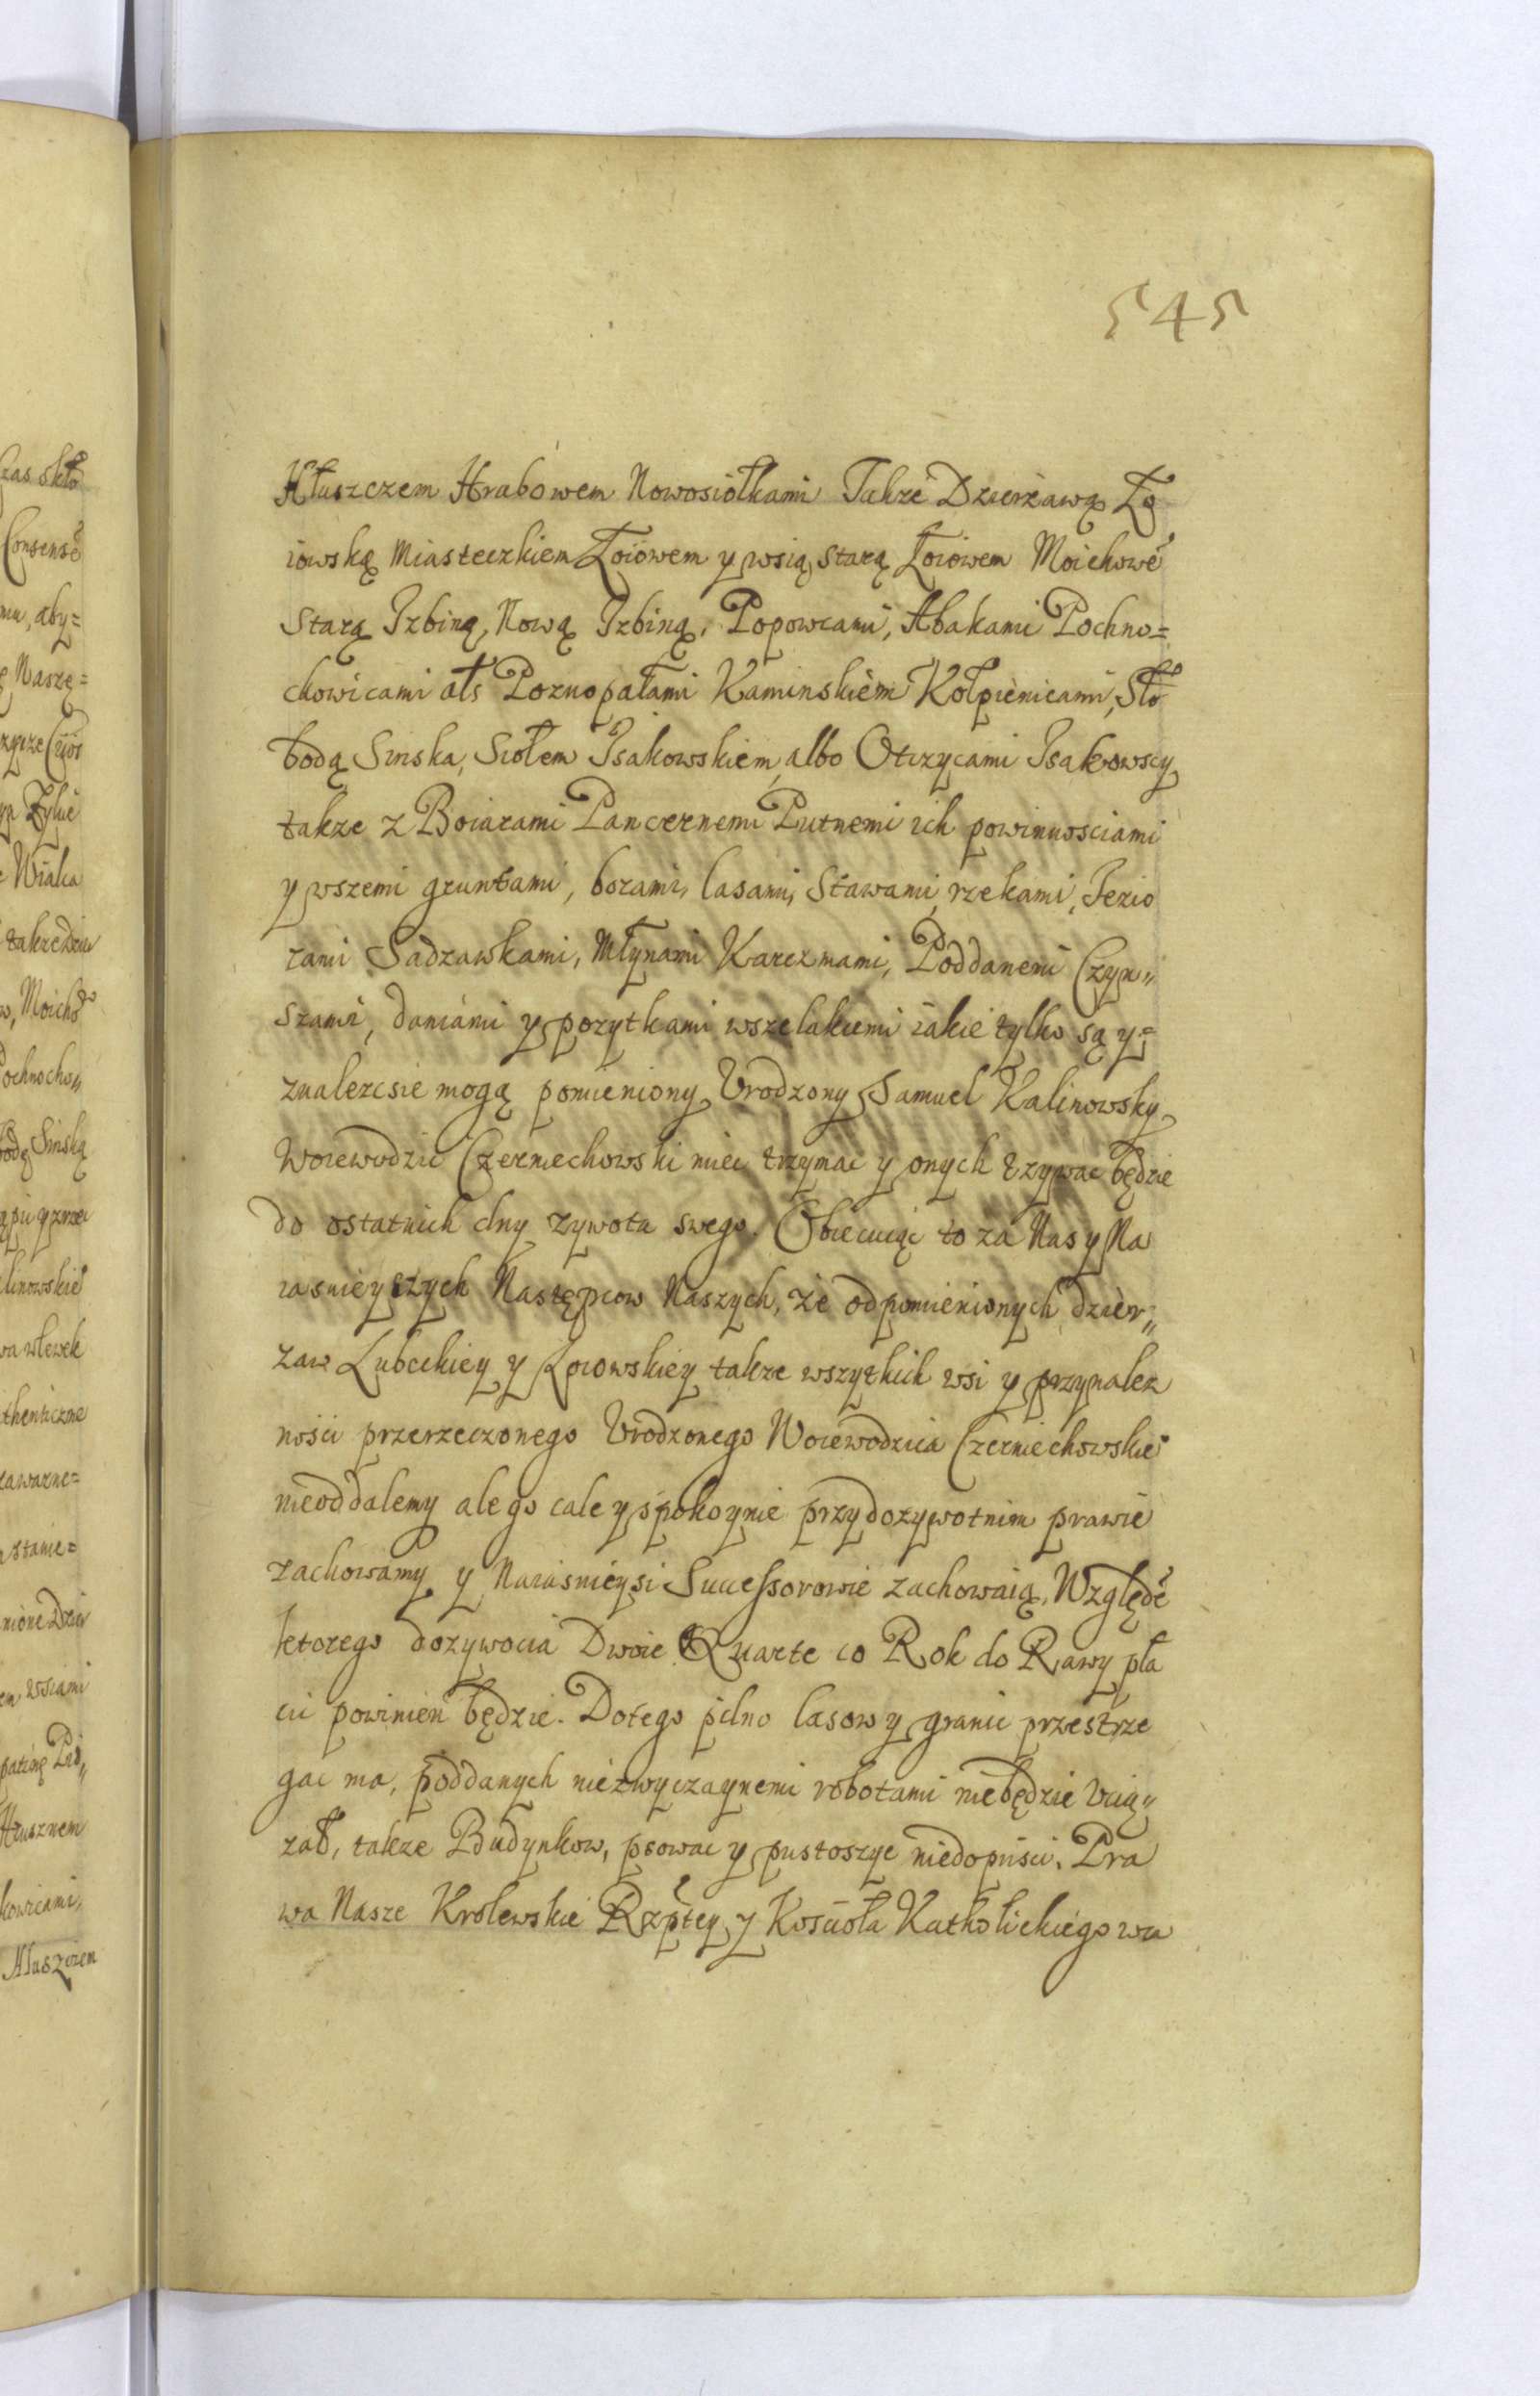 545
Hłuszczem Hrabowem Nowosiołkami Także Dzierżawą Ło
iowską Miasteczkiem Łoiowem y wsią starą Łoiowem Moichowe
Starą Izbiną, Nową Izbiną, Popowcami, Abakami Pochno=
chowicami als Poznopałami Kaminskiem Kołpienicami, Sło
bodą Sinska, Siołem Isakowskiem albo Otczycami Isakowscy
takze z Boiarami Pancernemi Putnemi ich powinnosciami
y wszemi gruntami, borami, lasami, Stawami, rzekami, Iezio
rami Sadzawkami, Młynami Karczmami, Poddanemi Czyn„
szami, daniami y pozytkami wszelakiemi iakie tylko są y=
znalezcsie mogą pomieniony Urodzony Samuel Kalinowsky
Woiewodzic Czerniechowski miec trzymac y onych uzywac będzie
do ostatnich dny zywota swego. Obiecuiąc to za Nas y Na
iasnieyszych Następcow Naszych, że od pomienionych dzier„
zaw Lubeckiey y Łoiowskiey takze wszytkich wsi y przynalez
nosci przerzeczonego Urodzonego Woiewodzica Czerniechowskie
nieoddalemy ale go cale y spokoynie przy dozywotnim prawie
zachowamy y Naiasnieysi Successorowie zachowaią, Względe
ktorego dozywocia Dwoie Quarte co Rok do Rawy pła
cic powinien będzie. Dotego pilno lasow y granic przestrze
gac ma, poddanych niezwyczaynemi robotami niebędzie Ucią„
zał, takze Budynkow, psowac y pustoszyc niedopusci. Pra
wa Nasze Krolewskie Rzptey y Koscioła Katholickiego wca
czas skło
Consense
mu, aby=
Naszę=
także Dzier
w, Moicho
Pochnocho„
bodę Sinską
linowskie
thenticzne
zawarne=
stanie=
nione Dzier
wsiami
Hłusznem
kowicami,
Hłuszczem